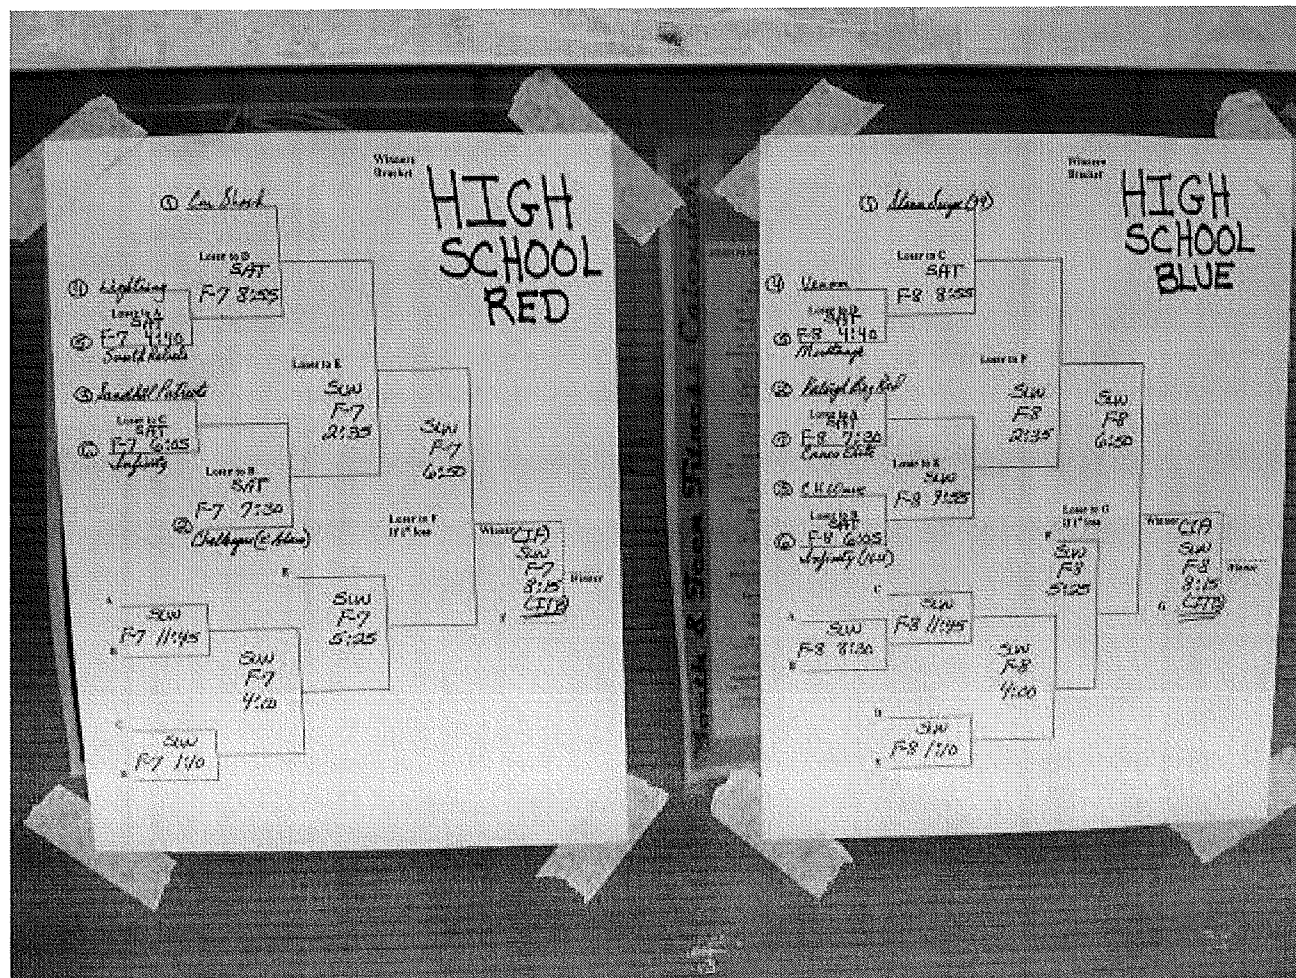 Winners
Bracket
HIGH
SCHOOL
RED
① Shock
Loser to D
SAT
F-7 8:55
④ Lightning
Loser to A
SAT
F-7 4:40
⑤
Rebels
③ Sandhill Patriots
Loser to C
SAT
F-7 6:05
⑥
Infinity
Loser to B
SAT
F-7 7:30
②
Loser to E
SUN
F-7
2:35
SUN
F-7
6:50
Loser to F
If 1st loss
Winner
(IF)
SUN
F-7
8:15
Winner
E
SUN
F-7
5:25
A
SUN
F-7 11:45
B
SUN
F-7
4:00
C
SUN
F-7 1:10
Winners
Bracket
HIGH
SCHOOL
BLUE
①
Loser to C
SAT
F-8 8:55
④ Venom
SAT
F-8 4:40
⑤
Mustangs
② Raleigh Big Red
Loser to A
SAT
F-8 7:30
⑦
Canes Elite
Loser to E
SUN
F-8 9:55
③
Loser to B
SAT
F-8 6:05
⑥
Infinity (16U)
Loser to F
SUN
F-8
2:35
SUN
F-8
6:50
Loser to G
If 1st loss
F
SUN
F-8
5:25
Winner
(IF)
SUN
F-8
8:15
Winner
G
C
SUN
F-8 11:45
A
SUN
F-8 8:30
B
SUN
F-8
4:00
D
SUN
F-8 1:10
E